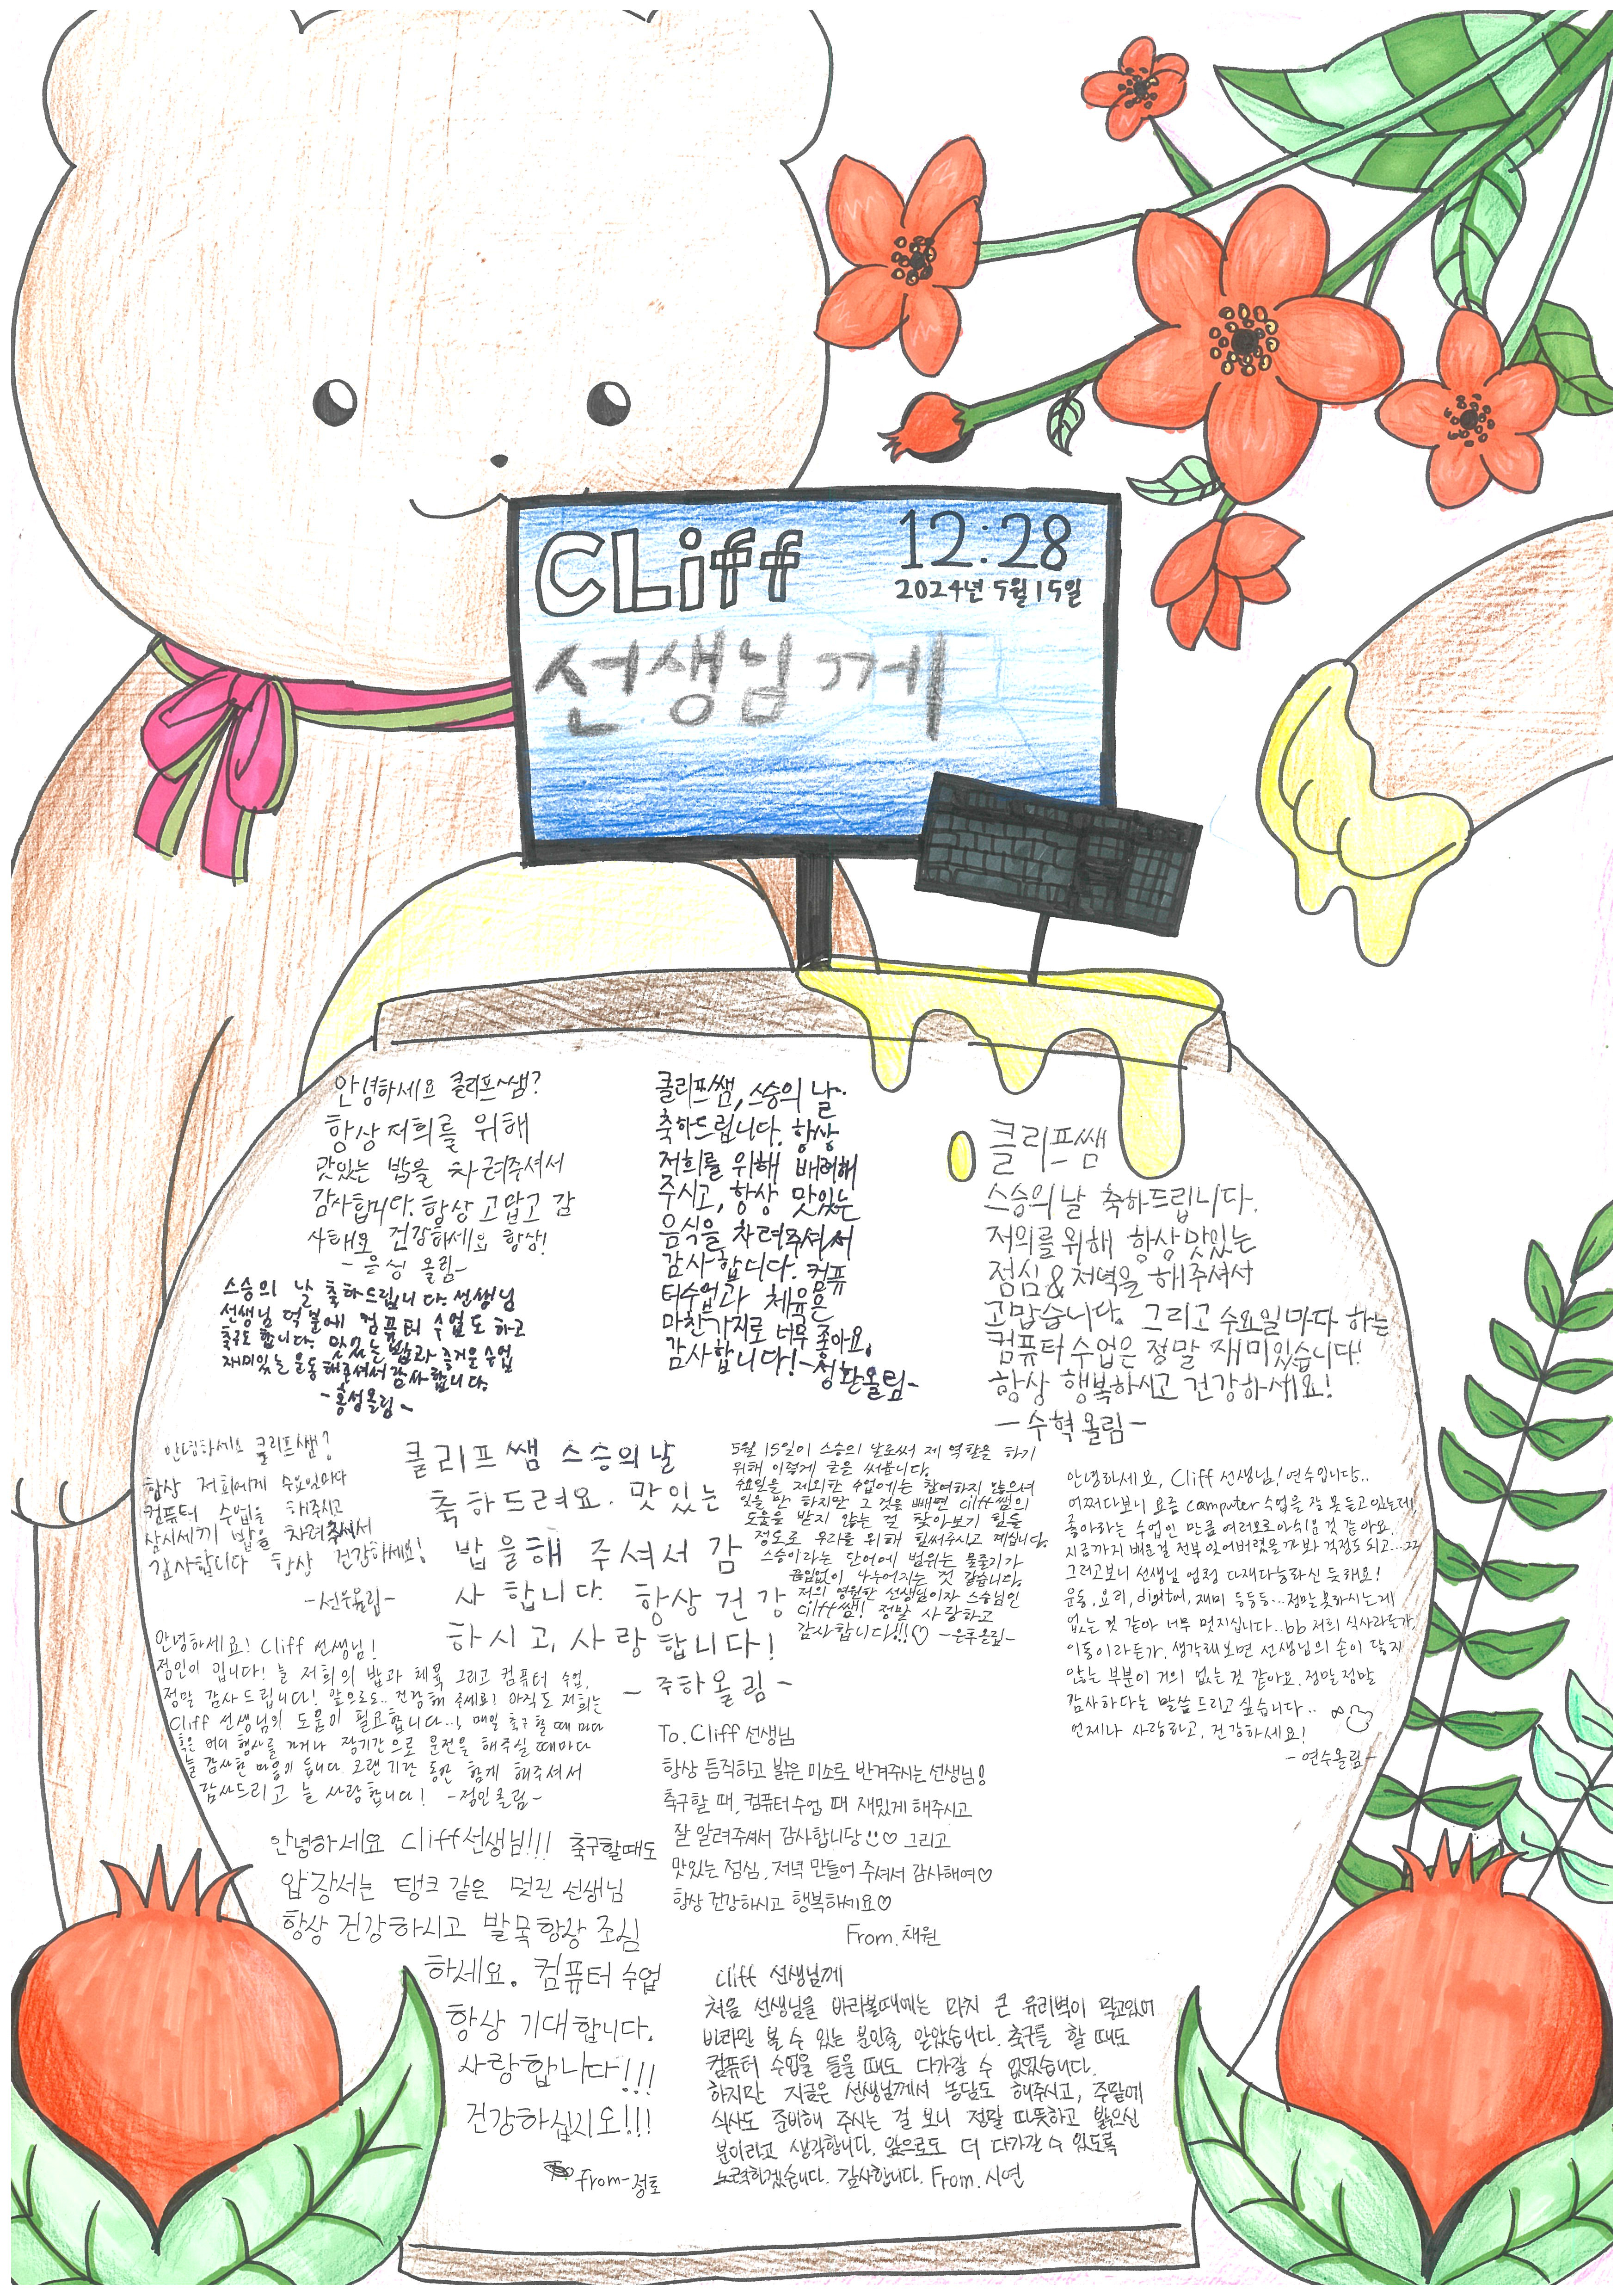 CLiff
12:28
2024년 5월 15일
선생님께
안녕하세요 클리프~쌤?
항상 저희를 위해
맛있는 밥을 차려주셔서
감사합니다. 항상 고맙고 감
사해요 건강하세요 항상!
-은성 올림-
스승의 날 축하드립니다. 선생님
선생님 덕분에 컴퓨터 수업도 하고
축구도 합니다. 맛있는 밥과 즐거운 수업
재미있는 운동 해주셔서 감사합니다.
-홍성올림-
클리프쌤, 스승의 날
축하드립니다. 항상
저희를 위해 배려해
주시고, 항상 맛있는
음식을 차려주셔서
감사합니다. 컴퓨
터수업과 체육은
마찬가지로 너무 좋아요,
감사합니다!-성환올림-
클리프쌤
스승의날 축하드립니다.
저의를 위해 항상 맛있는
점심&저녁을 해주셔서
고맙습니다. 그리고 수요일마다 하는
컴퓨터 수업은 정말 재미있습니다!
항상 행복하시고 건강하세요!
-수혁올림-
안녕하세요 클리프쌤?
항상 저희에게 수요일마다
컴퓨터 수업을 해주시고
삼시세끼 밥을 차려주셔서
감사합니다 항상 건강하세요!
-선우올림-
클리프쌤 스승의날
축하드려요. 맛있는
밥을해 주셔서 감
사합니다. 항상 건강
하시고, 사랑합니다!
-주하올림-
5월 15일이 스승의 날로써 제 역할을 하기
위해 이렇게 글을 써봅니다.
수요일을 제외한 수업에는 참여하지 않으셔
있을 만 하지만 그 것을 빼면 Cliff쌤의
도움을 받지 않는 걸 찾아보기 힘들
정도로 우리를 위해 힘써주시고 계십니다.
스승이라는 단어에 범위는 물줄기가
끊임없이 나누어지는 것 같습니다.
저의 영원한 선생님이자 스승님인
Cliff쌤! 정말 사랑하고
감사합니다!!!♡ -은후올림-
안녕하세요, Cliff 선생님! 연수입니다..
어쩌다보니 요즘 computer 수업을 잘 못 듣고 있는데
좋아라는 수업인 만큼 여러모로아쉬운 것 같아요.
지금까지 배운걸 전부 잊어버렸을 까봐 걱정도 되고...ㅋㅋ
그러고보니 선생님 엄청 다재다능하신 듯해요!
운동, 요리, digital, 재미 등등등... 정말못하시는게
없는 것 같아 너무 멋지십니다..bb 저희 식사라든가,
이동이라든가. 생각해보면 선생님의 손이 닿지
않는 부분이 거의 없는 것 같아요. 정말 정말
감사하다는 말씀 드리고 싶습니다..
언제나 사랑하고, 건강하세요!
-연수올림-
안녕하세요! Cliff 선생님!
정인이 입니다! 늘 저희의 밥과 체육 그리고 컴퓨터 수업,
정말 감사드립니다! 앞으로도.. 건강해 주세요! 아직도 저희는
Cliff 선생님의 도움이 필요합니다..! 매일 축구할 때 마다
혹은 어디 행사를 가거나 장기간으로 운전을 해주실 때마다
늘 감사한 마음이 듭니다. 오랜 기간 동안 함께 해주셔서
감사드리고 늘 사랑합니다! -정인올림-
To. Cliff 선생님
항상 듬직하고 밝은 미소로 반겨주시는 선생님!
축구할 때, 컴퓨터수업 때 재밌게 해주시고
잘 알려주셔서 감사합니당 ♡ 그리고
맛있는 점심, 저녁 만들어 주셔서 감사해여♡
항상 건강하시고 행복하세요♡
From. 채원
안녕하세요 Cliff선생님!!! 축구할때도
앞장서는 탱크 같은 멋진 선생님
항상 건강하시고 발목 항상 조심
하세요. 컴퓨터 수업
항상 기대합니다.
사랑합니다!!!
건강하십시오!!!
from-정토
Cliff 선생님께
처음 선생님을 바라볼때에는 마치 큰 유리벽이 막고있어
바라만 볼 수 있는 분인줄 알았습니다. 축구를 할 때도
컴퓨터 수업을 들을 때도 다가갈 수 없었습니다.
하지만 지금은 선생님께서 농담도 해주시고, 주말에
식사도 준비해 주시는 걸 보니 정말 따뜻하고 밝으신
분이라고 생각합니다. 앞으로도 더 다가갈 수 있도록
노력하겠습니다. 감사합니다. From. 시연